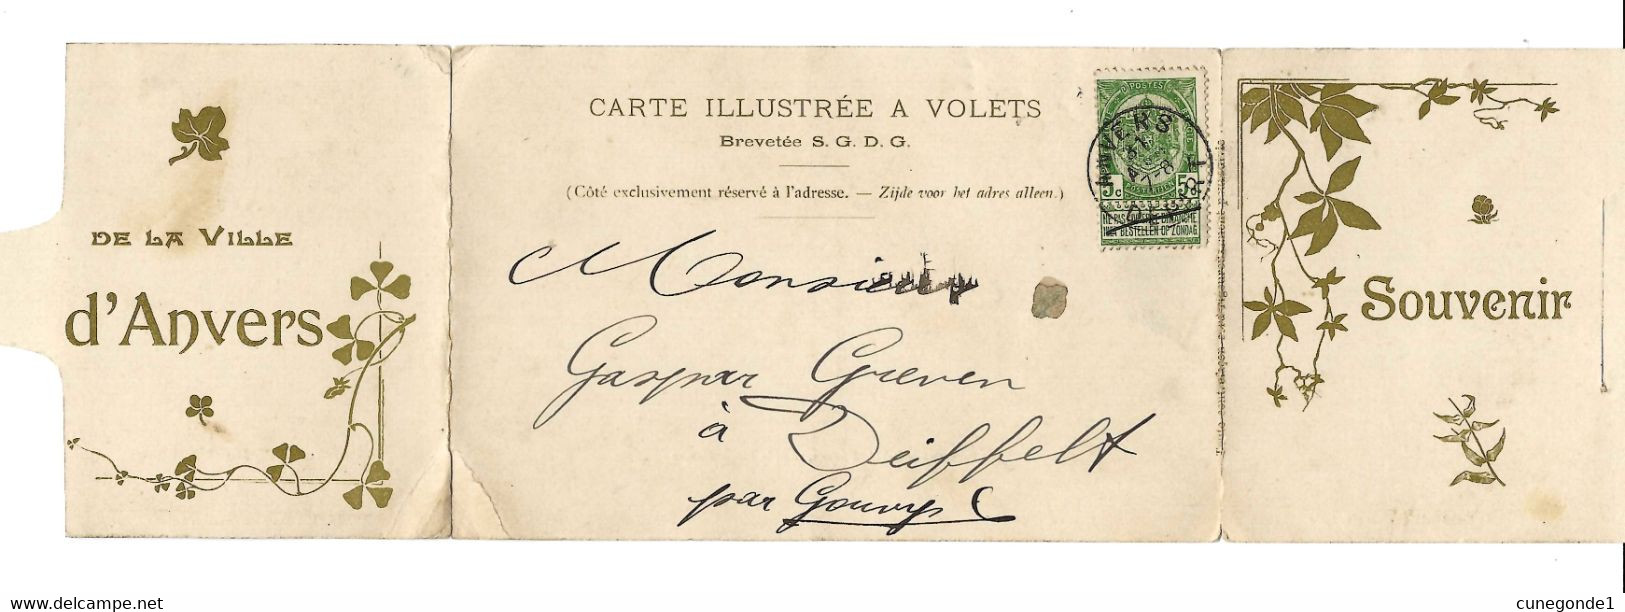 DE LA VILLE
d'Anvers
CARTE ILLUSTRÉE A VOLETS
Brevetée S. G. D. G.
(Côté exclusivement réservé à l'adresse. — Zijde voor het adres alleen.)
POSTES
ANVERS
7-8
5c 5c
NE PAS LIVRER LE DIMANCHE
NIET BESTELLEN OP ZONDAG
Monsieur
Gaspar Greven
à
Deiffelt
par Gouvy
Souvenir
www.delcampe.net
cunegonde1